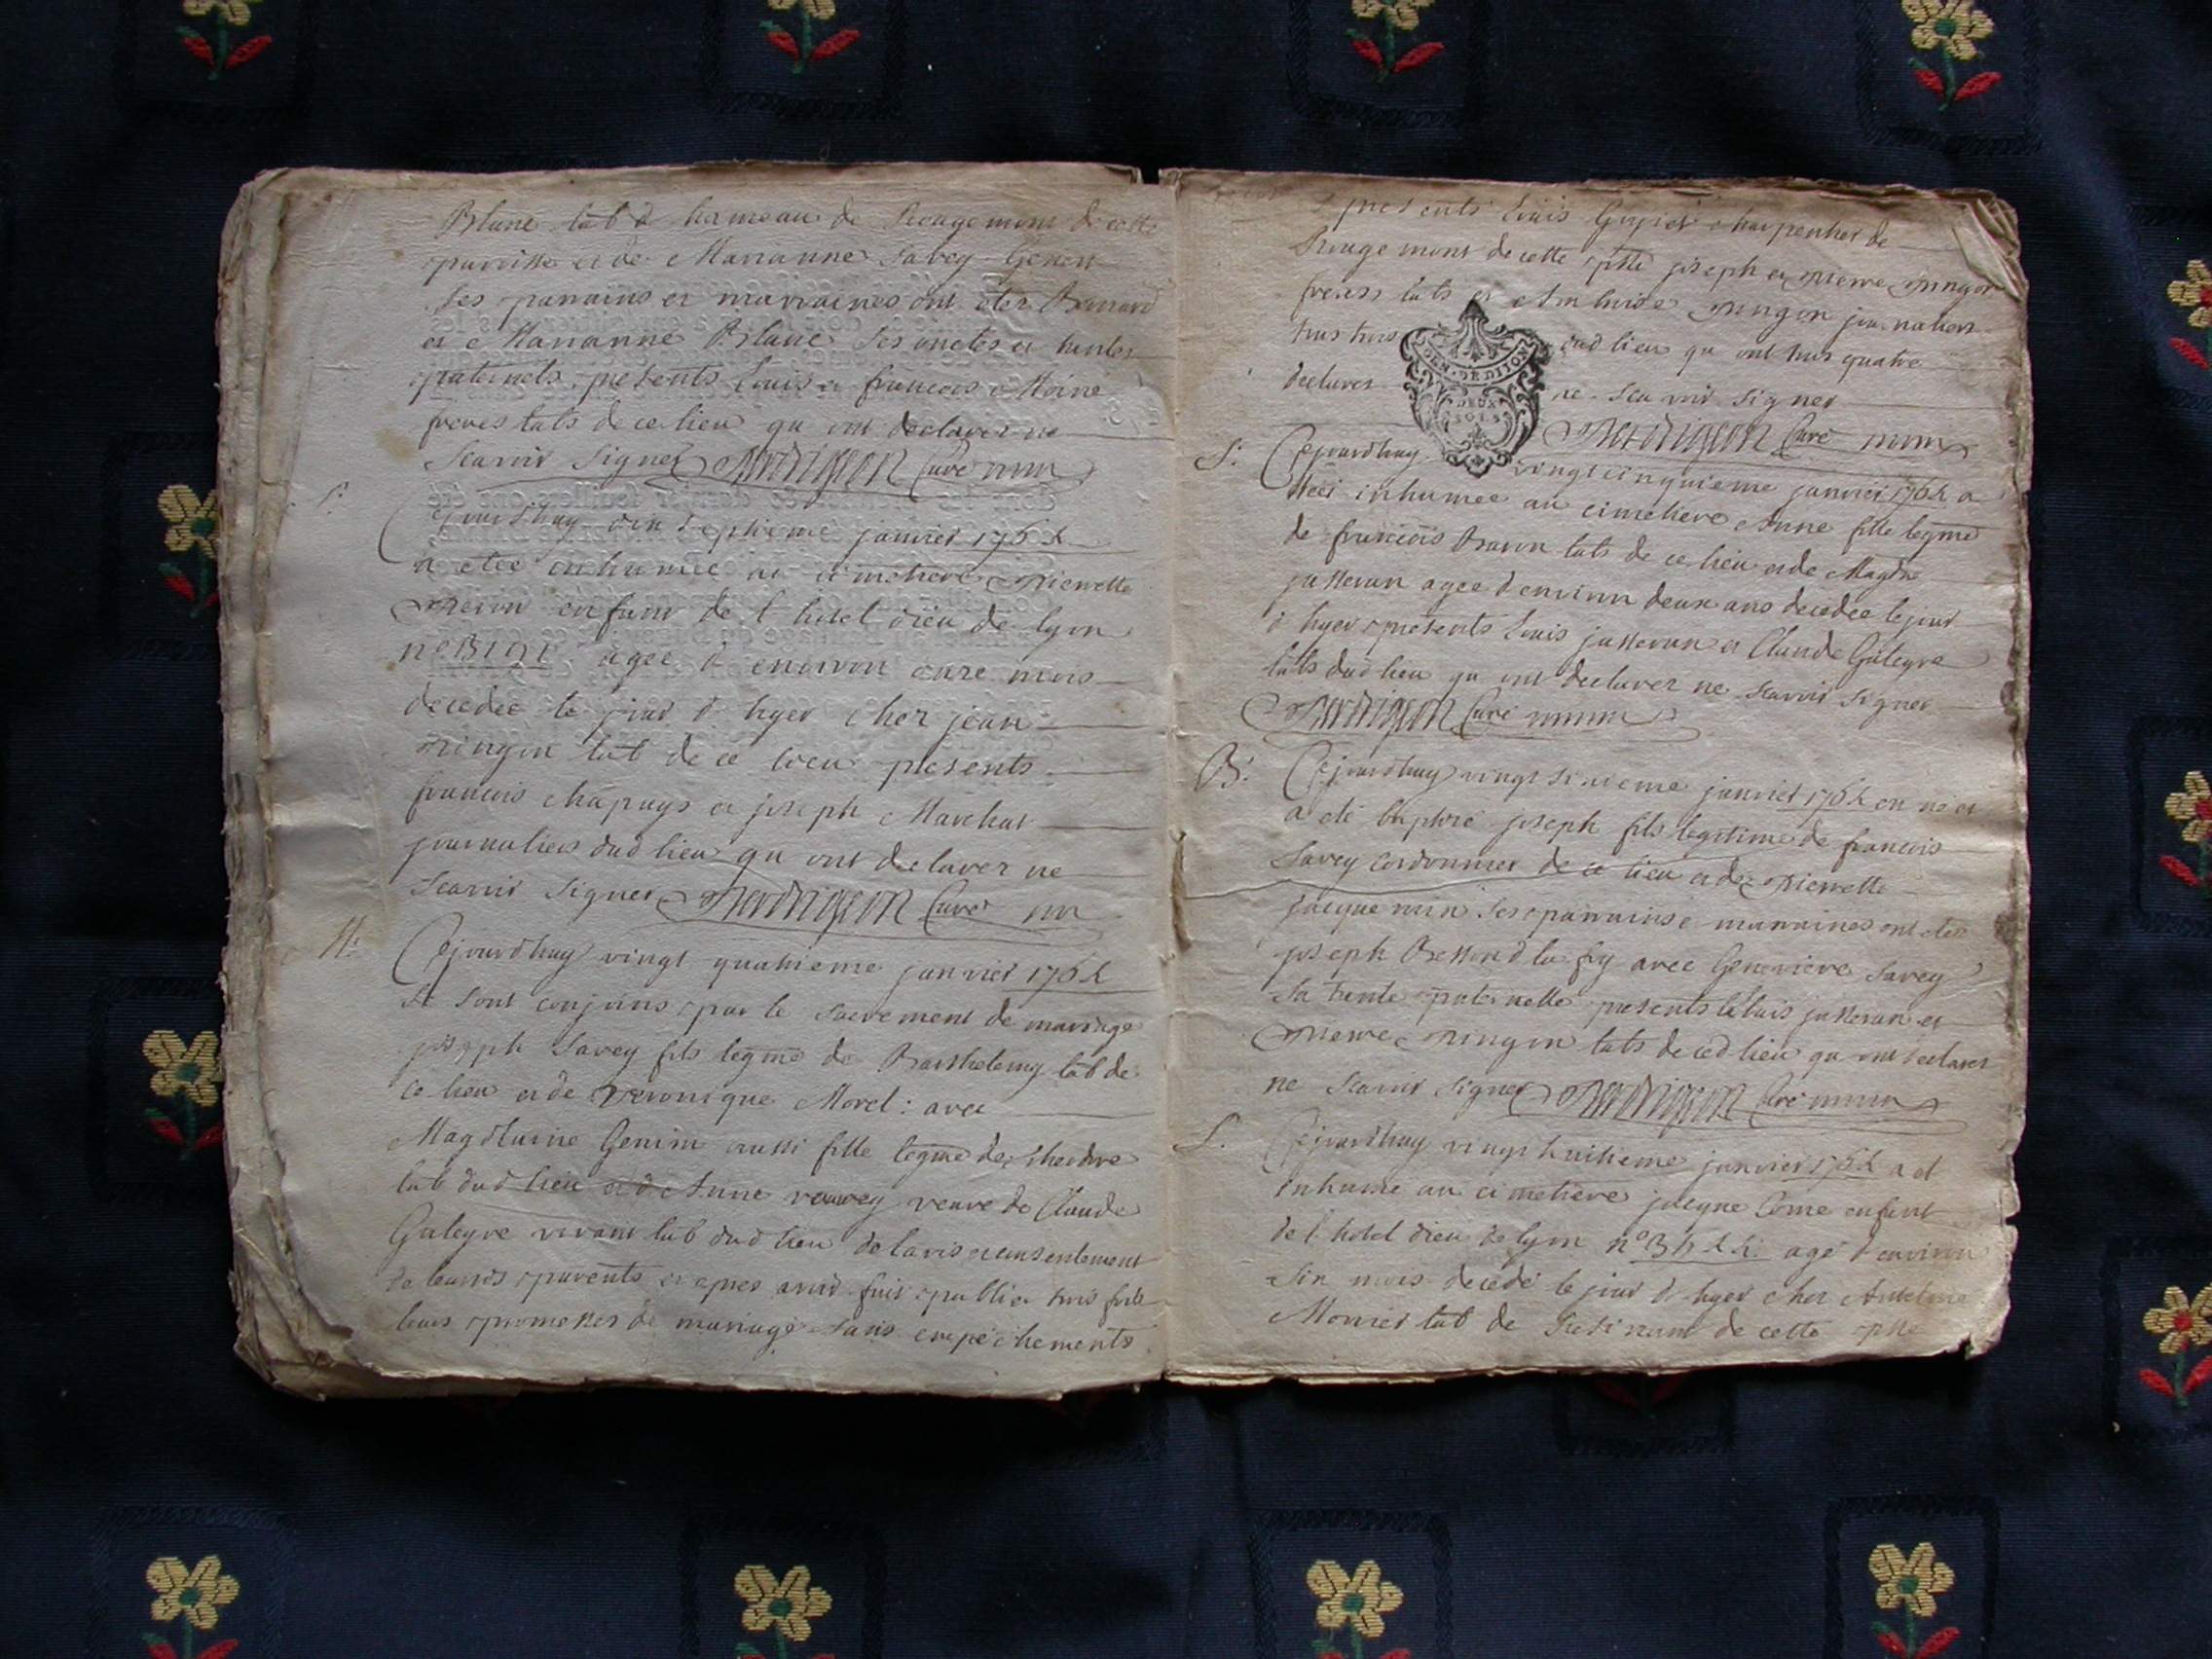 Blanc lab d hameau de Rougemont de cette
paroisse et de Marianne Savey Genen
ses parains et marraines ont eter Bernard
et Marianne Blanc ses oncles et tantes
paternels, presents Louis et francois Moine
freres labs de ce lieu qui ont declarer ne
scavoir signer Curé
S. Cejourdhuy dix septieme janvier 1764
a etee inhumee au cimetiere pierrette
enfant de l hotel dieu de lyon
n° agee d environ onze mois
decedee le jour d hyer chez jean
pingon lab de ce lieu presents
francois chapuys et joseph Marchat
journaliers dud lieu qui ont declarer ne
scavoir signer Curé
M. Cejourdhuy vingt quatrieme janvier 1764
se sont conjoins par le sacrement de mariage
joseph Savey fils legme de Barthelemy lab de
ce lieu et de Veronique Morel: avec
Magdlaine Genin aussi fille legme de theodore
lab dud lieu et de Anne veuve de Claude
Galeyre vivant lab dud lieu de lavis et consentement
de leurs parents et apres avoir fait publier trois fois
leurs promesses de mariage sans empechements
presents Louis charpentier de
Rougemont de cette psse joseph et pierre pingon
freres labs et Anthoise pingon journaliers
tous trois dud lieu qui ont tous quatre
declarer ne scavoir signer
GEN. DE DIJON
DEUX
SOLS
Curé
S. Cejourdhuy vingt cinquieme janvier 1764 a
inhumee au cimetiere Anne fille legme
de francois Baron lab de ce lieu et de Magdne
jasseran agee d environ deux ans decedee le jour
d hyer presents Louis jasseran et Claude Galeyre
labs dud lieu qui ont declarer ne scavoir signer
Curé
B. Cejourdhuy vingt sixieme janvier 1764 en né et
a eté baptisé joseph fils legitime de francois
Savey cordonnier de ce lieu et de pierrette
jacquemin. Ses parains e maraines ont eter
joseph avec Genevieve Savey
sa tante paternelle presents Louis jasseran et
pierre pingon labs de ced lieu qui ont declarer
ne scavoir signer Curé
S. Cejourdhuy vingt huitieme janvier 1764 a et
inhumé au cimetiere jacque Come enfant
de l hotel dieu de lyon n° agé d environ
six mois decedé le jour d hyer chez Antelme
Monier lab de de cette psse